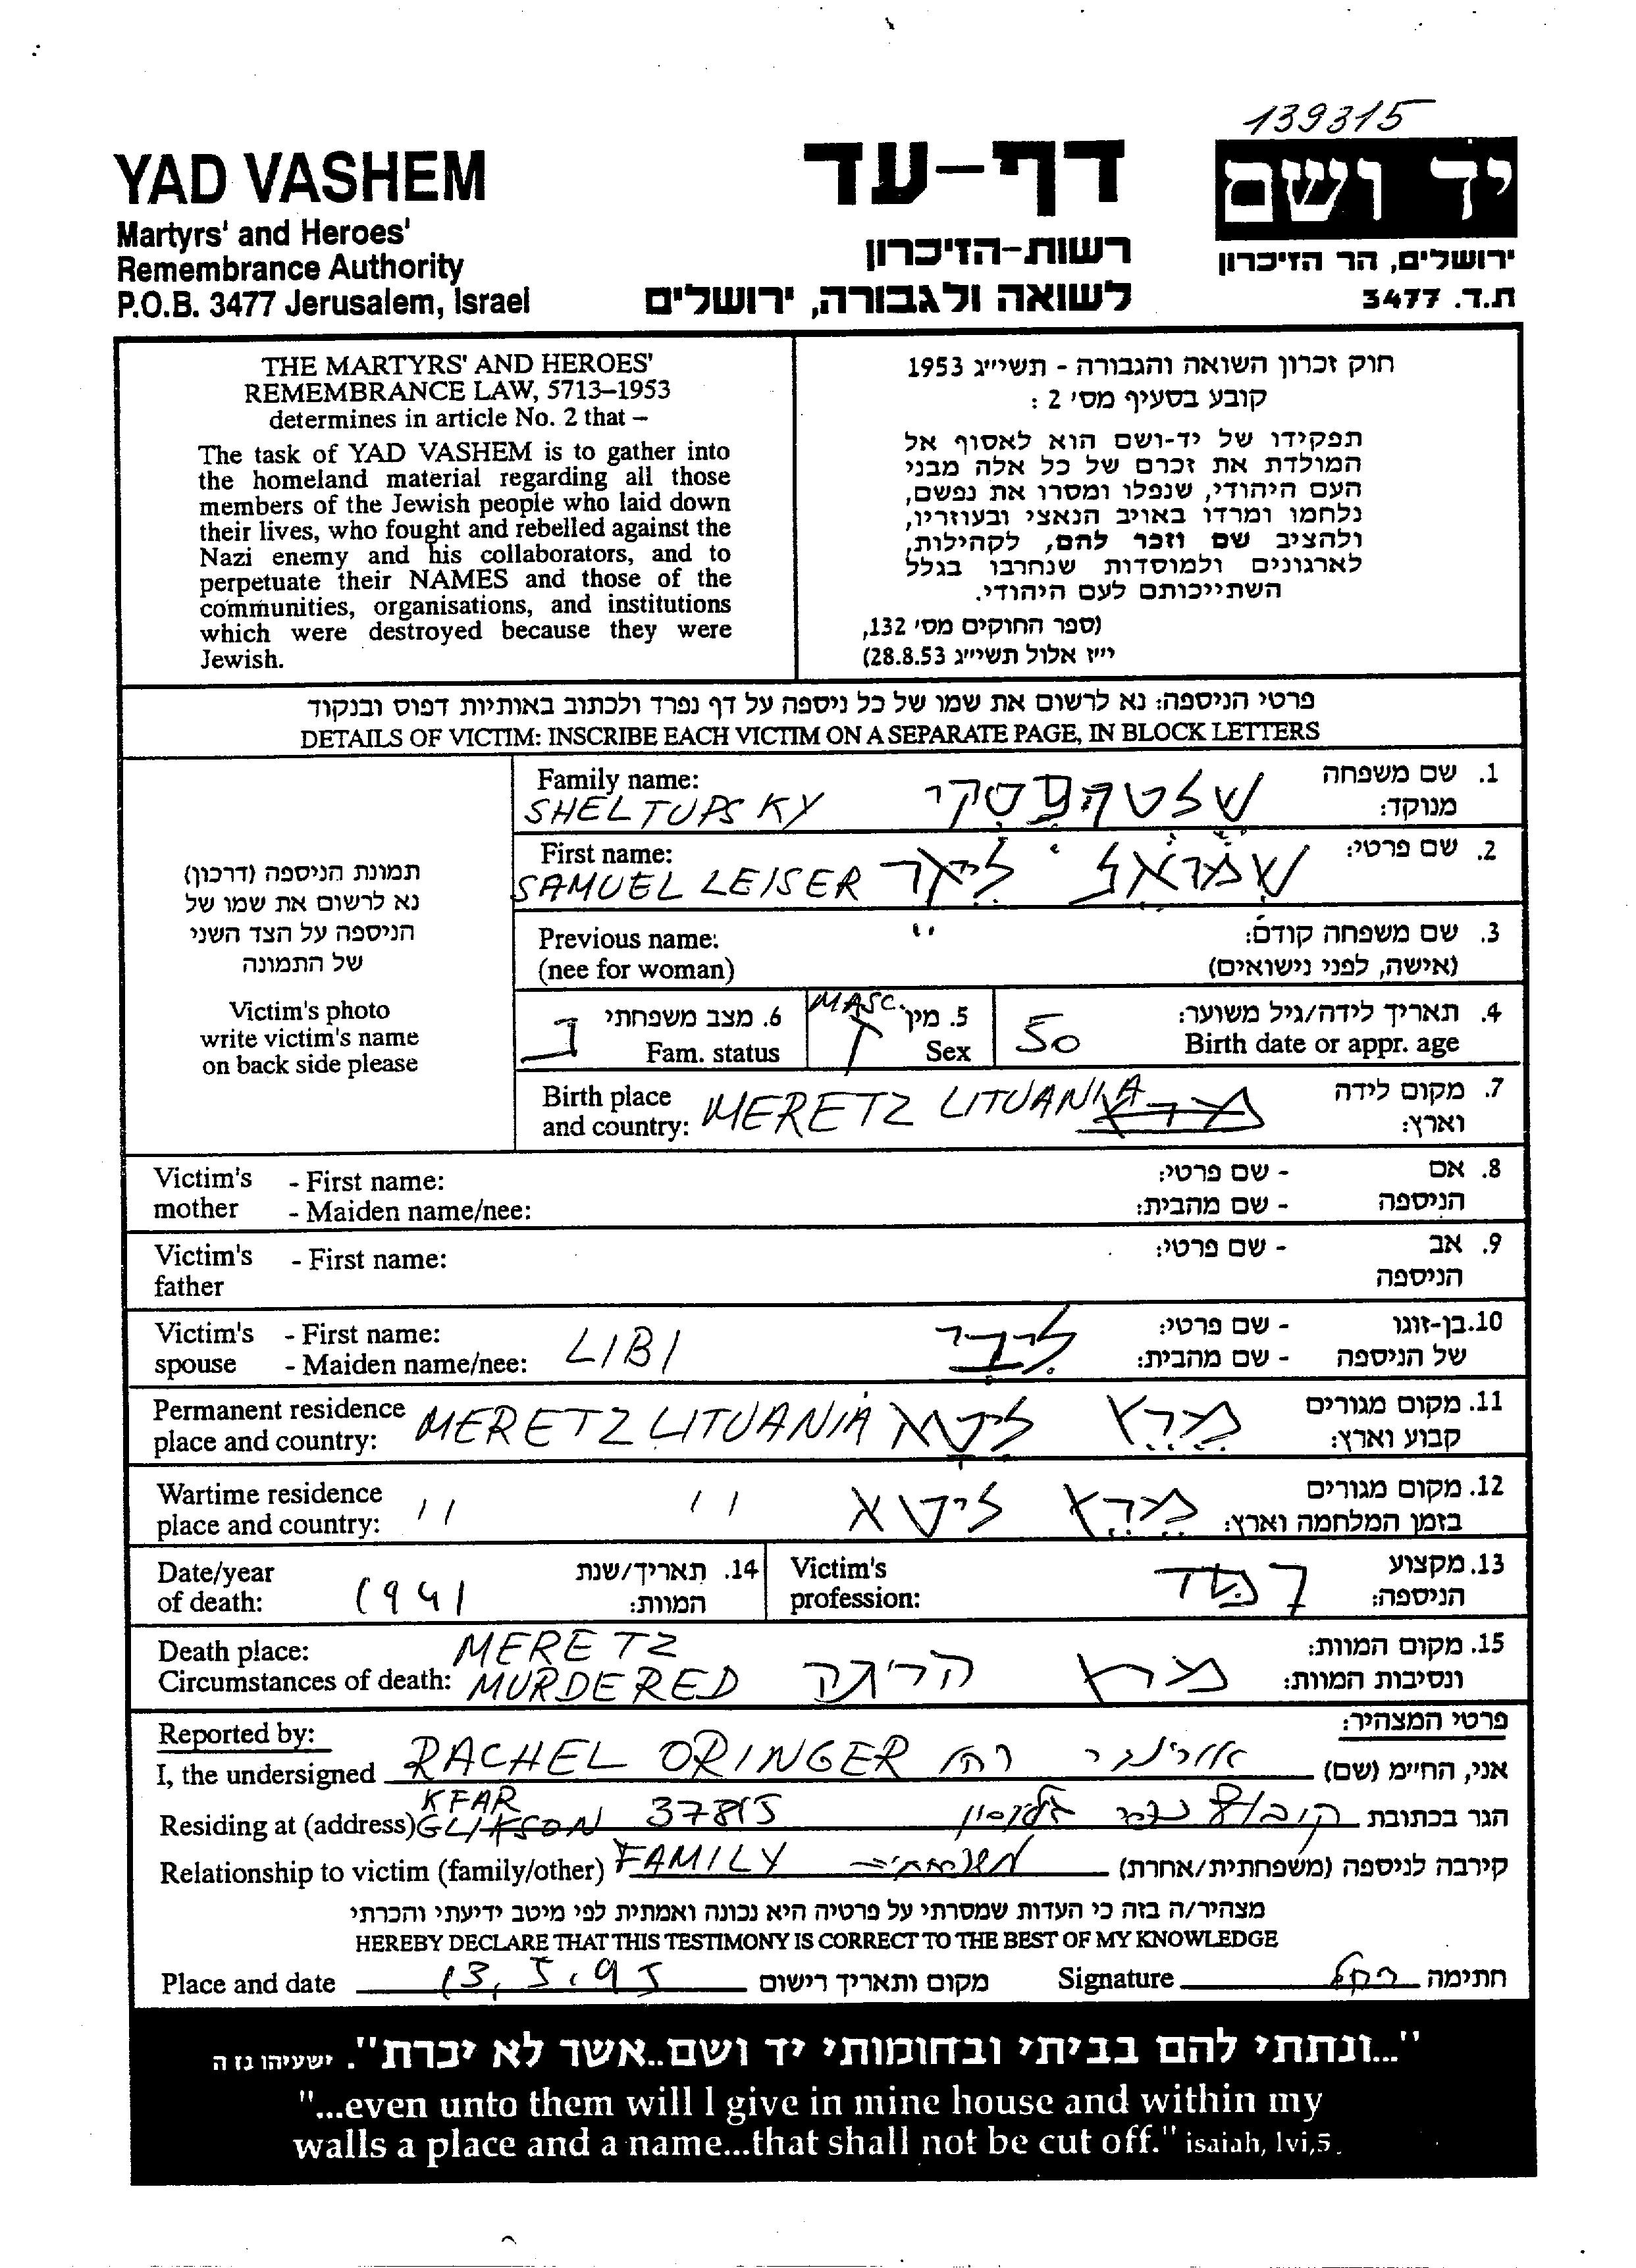 139315
YAD VASHEM
Martyrs' and Heroes'
Remembrance Authority
P.O.B. 3477 Jerusalem, Israel
דף-עד
רשות-הזיכרון
לשואה ולגבורה, ירושלים
יד ושם
ירושלים, הר הזיכרון
ת.ד. 3477
THE MARTYRS' AND HEROES'
REMEMBRANCE LAW, 5713–1953
determines in article No. 2 that –
The task of YAD VASHEM is to gather into
the homeland material regarding all those
members of the Jewish people who laid down
their lives, who fought and rebelled against the
Nazi enemy and his collaborators, and to
perpetuate their NAMES and those of the
communities, organisations, and institutions
which were destroyed because they were
Jewish.
חוק זכרון השואה והגבורה - תשי״ג 1953
קובע בסעיף מס' 2 :
תפקידו של יד-ושם הוא לאסוף אל
המולדת את זכרם של כל אלה מבני
העם היהודי, שנפלו ומסרו את נפשם,
נלחמו ומרדו באויב הנאצי ובעוזריו,
ולהציב שם וזכר להם, לקהילות,
לארגונים ולמוסדות שנחרבו בגלל
השתייכותם לעם היהודי.
(ספר החוקים מס' 132,
י״ז אלול תשי״ג 28.8.53)
פרטי הניספה: נא לרשום את שמו של כל ניספה על דף נפרד ולכתוב באותיות דפוס ובנקוד
DETAILS OF VICTIM: INSCRIBE EACH VICTIM ON A SEPARATE PAGE, IN BLOCK LETTERS
תמונת הניספה (דרכון)
נא לרשום את שמו של
הניספה על הצד השני
של התמונה
Victim's photo
write victim's name
on back side please
Family name: 1. שם משפחה
SHELTUPSKY מנוקד:
First name: 2. שם פרטי:
SAMUEL LEISER
Previous name: " 3. שם משפחה קודם:
(nee for woman) (אישה, לפני נישואים)
6. מצב משפחתי MASC. 5. מין 4. תאריך לידה/גיל משוער:
Fam. status Sex 50 Birth date or appr. age
Birth place 7. מקום לידה
and country: MERETZ LITUANIA וארץ:
Victim's - First name: - שם פרטי: 8. אם
mother - Maiden name/nee: - שם מהבית: הניספה
Victim's - First name: - שם פרטי: 9. אב
father הניספה
Victim's - First name: LIBI ליבי - שם פרטי: 10. בן-זוגו
spouse - Maiden name/nee: - שם מהבית: של הניספה
Permanent residence 11. מקום מגורים
place and country: MERETZ LITUANIA מרץ ליטא קבוע וארץ:
Wartime residence 12. מקום מגורים
place and country: " " מרץ ליטא בזמן המלחמה וארץ:
Date/year 14. תאריך/שנת Victim's 13. מקצוע
of death: 1941 המוות: profession: הניספה:
Death place: MERETZ 15. מקום המוות:
Circumstances of death: MURDERED מרץ ונסיבות המוות:
Reported by: פרטי המצהיר:
I, the undersigned RACHEL ORINGER אני, החיימ (שם)
Residing at (address) KFAR GLIKSON 37815 קיבוץ כפר גליקסון הגר בכתובת
Relationship to victim (family/other) FAMILY משפחתית קירבה לניספה (משפחתית/אחרת)
מצהיר/ה בזה כי העדות שמסרתי על פרטיה היא נכונה ואמתית לפי מיטב ידיעתי והכרתי
HEREBY DECLARE THAT THIS TESTIMONY IS CORRECT TO THE BEST OF MY KNOWLEDGE
Place and date 13.5.95 מקום ותאריך רישום Signature רחל חתימה
"...ונתתי להם בביתי ובחומותי יד ושם..אשר לא יכרת". ישעיהו נז ה
"...even unto them will I give in mine house and within my
walls a place and a name...that shall not be cut off." isaiah, lvi,5.